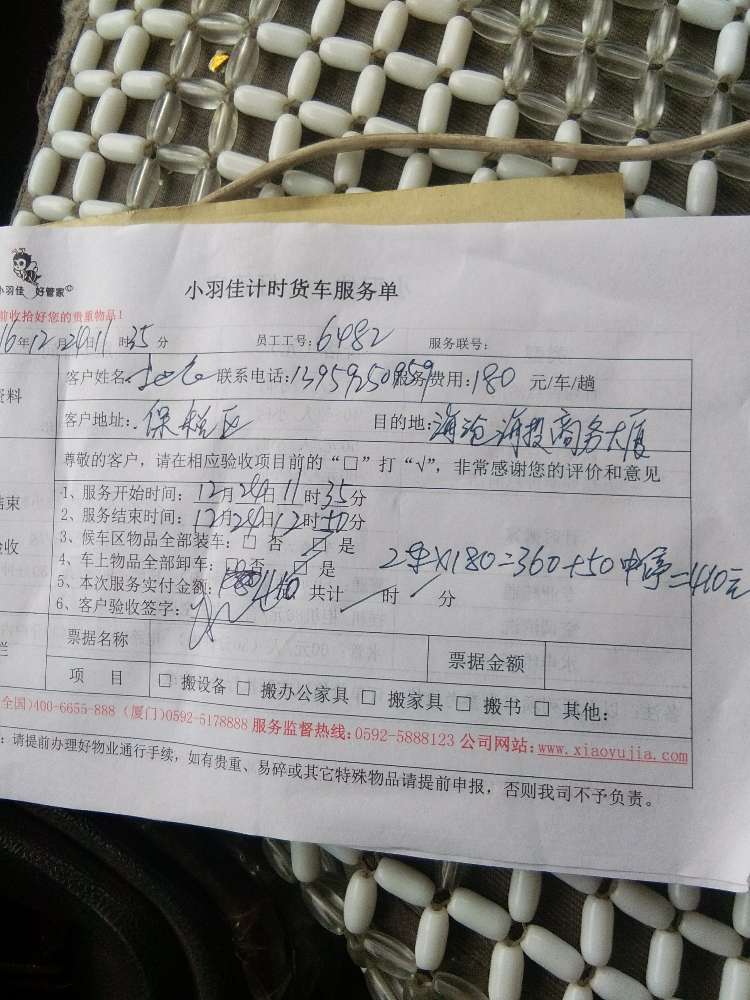 小羽佳 好管家©
小羽佳计时货车服务单
前收拾好您的贵重物品！
16年12月24日11时35分 员工工号：6482 服务联号：
资料
客户姓名： 联系电话：13959250959 服务费用：180 元/车/趟
客户地址：保税区 目的地：海沧海投商务大厦
尊敬的客户，请在相应验收项目前的“□”打“√”，非常感谢您的评价和意见
结束
验收
1、服务开始时间：12月24日11时35分
2、服务结束时间：12月24日12时50分
3、候车区物品全部装车：□ 否 □ 是
4、车上物品全部卸车：□ 否 □ 是
2车X180=360+50中停=410元
5、本次服务实付金额：410 共计 时 分
6、客户验收签字：
栏
票据名称 票据金额
项 目 □ 搬设备 □ 搬办公家具 □ 搬家具 □ 搬书 □ 其他：
全国)400-6655-888 (厦门)0592-5178888 服务监督热线：0592-5888123 公司网站：www.xiaoyujia.com
：请提前办理好物业通行手续，如有贵重、易碎或其它特殊物品请提前申报，否则我司不予负责。